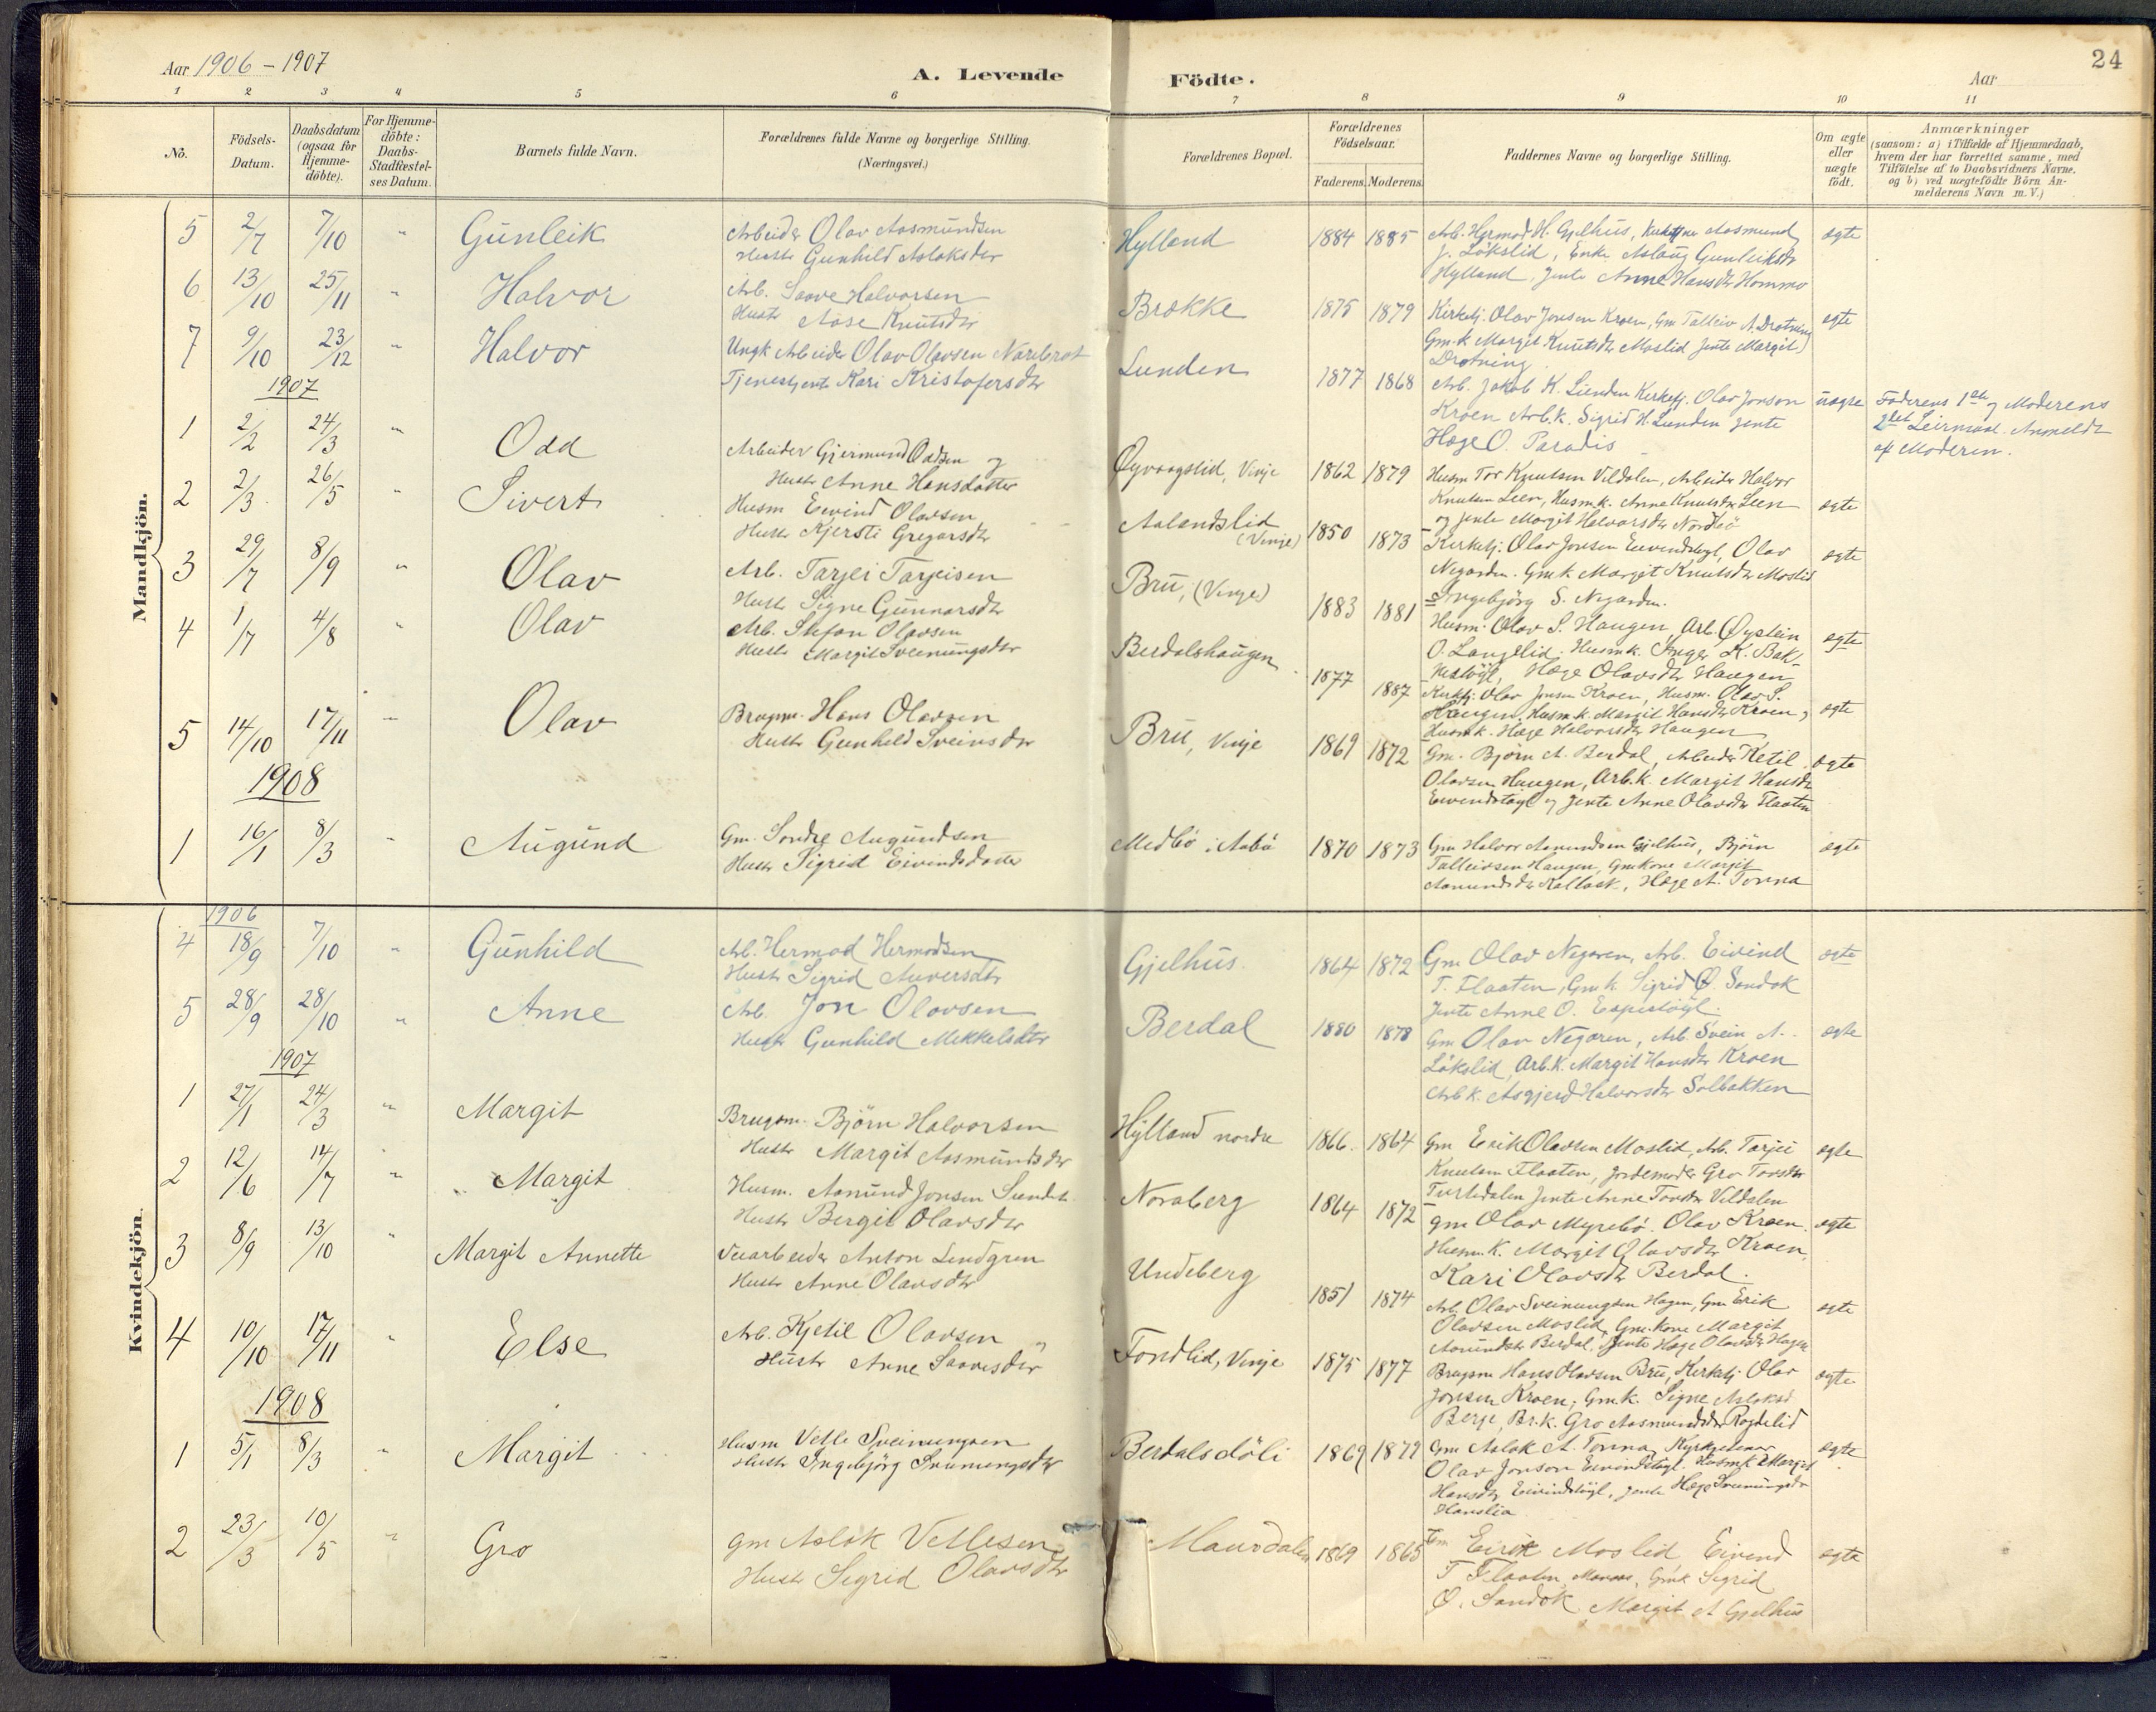 Aar 1906 - 1907
A. Levende Födte.
Aar
24
1 2 3 4 5 6 7 8 9 10 11
No.
Födsels-Datum.
Daabsdatum (ogsaa for Hjemme-döbte).
For Hjemme-döbte: Daabs-Stadfæstel-ses Datum.
Barnets fulde Navn.
Forældrenes fulde Navne og borgerlige Stilling.
(Næringsvei.)
Forældrenes Bopæl.
Forældrenes Födselsaar.
Faderens. Moderens.
Faddernes Navne og borgerlige Stilling.
Om ægte eller uægte födt.
Anmærkninger
(saasom: a) i Tilfælde af Hjemmedaab,
hvem der har forrettet samme, med
Tilföielse af to Daabsvidners Navne.
og b) ved uægtefödte Börn An-
melderens Navn m. V.)
Mandkjön.
5 2/7 7/10 " Gunleik
Arbeider Olav Aasmundsen
Hustr Gunhild Aslaksdtr
Hylland 1884 1885
Arb. Hermod H. Gjelhus, Aasmund
J. Løkslid, Enke Aslaug Gunleiksdtr
Hylland, Jente Anne Hansdtr Hommo
ægte
6 13/10 25/11 " Halvor
Arb. Saave Halvorsen
Hustr Aase Knutsdtr
Brokke 1875 1879
Kirketj. Olav Jonsen Kroen, Gm Talleiv A. Drotning
Gm.k Margit Knutsdtr Moslid Jente Margit
Drotning
ægte
7 9/10 23/12 " Halvor
Ungk Arbeider Olav Olavsen
Tjenestjente Kari Kristofersdtr
Lunden 1877 1868
Arb. Jakob K. Lunden Kirketj. Olav Jonson
Kroen Arb.k. Sigrid H. Lunden Jente
Hæge O. Paradis
uægte
Faderens 1ste og Moderens
2det Leirmaal. Anmeldt
af Moderen.
1907
1 2/2 24/3 " Odd
Arbeider Gjermund Oddsen og
Hustr Anne Hansdatter
Øyvaagslid, Vinje 1862 1879
Husm Tor Knutsen Vildalen, Arbeider Halvor
Knutsen Leen, Husmk. Anne Knutsdtr Leen
og Jente Margit Halvorsdtr Nordbö
ægte
2 2/3 26/5 " Sivert
Husm Eivind Olavsen
Hustr Kjersti Gregarsdtr
Aalandslid (Vinje) 1850 1873
Kirketj. Olav Jonsen Eivindstøyl, Olav
Negarden. Gmk Margit Knutsdtr Moslid
Ingebjörg S. Negarden.
ægte
3 29/7 8/9 " Olav
Arb. Tarjei Tarjeisen
Hustr Signe Gunnarsdtr
Bru, (Vinje) 1883 1881
Husm. Olav S. Haugen, Arb. Øystein
O. Langelid. Husmk. Inger K. Bak-
støyl, Hæge Olavsdtr Haugen
ægte
4 1/7 4/8 " Olav
Arb. Stefan Olavsen
Hustr Margit Sveinungsdtr
Berdalshaugen 1877 1887
Kirketj. Olav Jonsen Kroen, Husm. Olav S.
Haugen, Husm.k. Margit Hansdtr Kroen,
Husmk. Hæge Halvorsdtr Haugen
ægte
5 14/10 17/11 " Olav
Brugsm. Hans Olavsen
Hustr Gunhild Sveinsdtr
Bru, Vinje 1869 1872
Gm. Bjørn A. Berdal, Arbeider Ketil
Olavsen Haugen, Arb.k. Margit Hansdtr
Eivendstøyl og Jente Anne Olavsdtr Flaaten
ægte
1908
1 16/1 8/3 " Augund
Gm. Sondre Augundsen
Hustr Sigrid Eivindsdatter
Medbö i Aabö 1870 1873
Gm Halvor Aamundsen Gjelhus, Björn
Talleivsen Haugen, Gmkone Margit
Aamundsdtr Kallaak, Hæge A. Tonna
ægte
Kvindekjön.
1906
4 18/9 7/10 " Gunhild
Arb. Hermod Hermodsen
Hustr Sigrid Auversdtr
Gjelhus. 1864 1872
Gm Olav Negaren, Arb. Eivind
T. Flaaten, Gm.k. Sigrid Ø. Sandok
Jente Anne O. Espestøyl.
ægte
5 28/9 28/10 " Anne
Arb. Jon Olavsen
Hustr Gunhild Mikkelsdtr
Berdal 1880 1878
Gm Olav Negaren, Arb. Svein A.
Løkslid, Arb.K. Margit Hansdtr Kroen
Arb k. Asgjerd Halvorsdtr Solbakken
ægte
1907
1 27/1 24/3 " Margit
Brugsm. Björn Halvorsen
Hustr Margit Aasmundsdtr
Hylland nordre 1866. 1864
Gm Eirik Olavsen Moslid, Arb. Tarjei
Knutsen Flaaten, Jordemoder Gro Torsdtr
Turtedalen Jente Anne Torsdtr Vildalen
ægte
2 12/6 14/7 " Margit
Husm. Aamund Jonsen
Hustr Bergit Olavsdtr
Noraberg 1864 1872
gm Olav Myrebö. Olav Kroen.
Husm.K. Margit Olavsdtr Kroen,
Kari Olavsdtr Berdal.
ægte
3 8/9 13/10 " Margit Annette
Veiarbeider Anton Lindgren
Hustr Anne Olavsdtr
Undeberg 1851 1874
Arb. Olav Sveinungsen Hagen, Gm Eirik
Olavsen Moslid, Gm.kone Margit
Aamundsdtr Berdal. Jente Hæge Olavsdtr Hagen
ægte
4 10/10 17/11 " Else
Arb. Kjetil Olavsen
Hustr Anne Saavesdtr
Fondlid, Vinje 1875 1877
Brugsm Hans Olavsen Bru, Kirketj. Olav
Jonsen Kroen, Gm.k. Signe Aslaksd
Berge, Br.k. Gro Aasmundsdtr Rogdelid
ægte
1908
1 5/1 8/3 " Margit
Husm Vetle Sveinungsen
Hustr Ingebjörg Sveinungsdtr
Berdalsdöli 1869 1879
Gm Aslak A. Tonna, Kyrkjetenar
Olav Jonson Eivindstøyl. Husmk Margit
Hansdtr Eivindstøyl, Jente Hæge Sveinungsdtr
Hauslia
ægte
2 23/3 10/5 " Gro
gm Aslak Vetlesen
Hustr Sigrid Olavsdtr
Mausdalen 1869 1865
Gm Eirik Moslid, Eivend
T Flaaten, Gmk Sigrid
Ø. Sandok Margit A Gjelhus
ægte